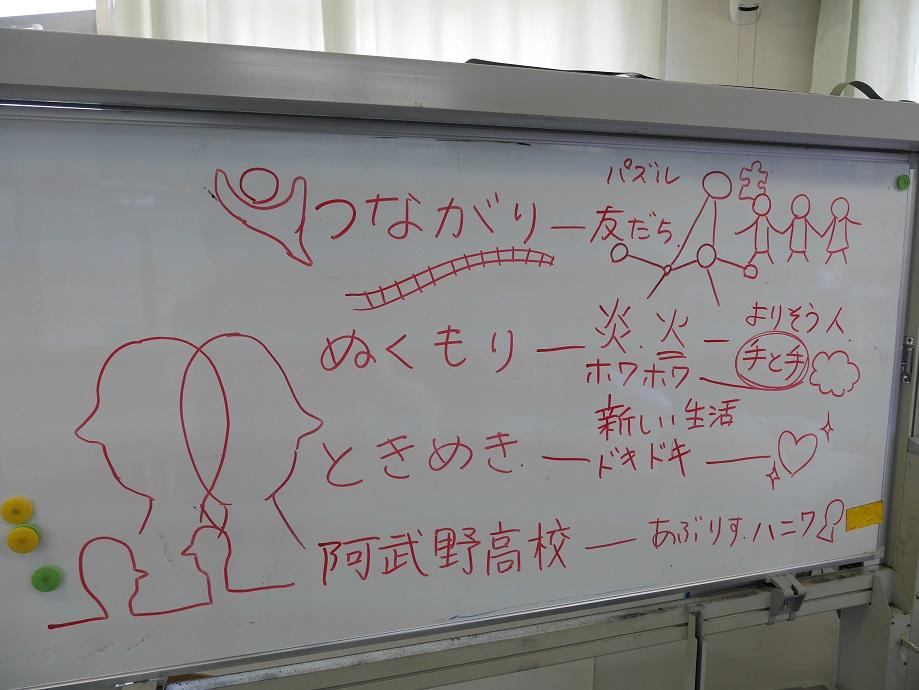 パズル
つながり ― 友だち.
よりそう人.
ぬくもり ― 炎.火 ―
手と手
ホワホワ
新しい生活
ときめき. ― ドキドキ ―
阿武野高校 ― あぶりす.ハニワ